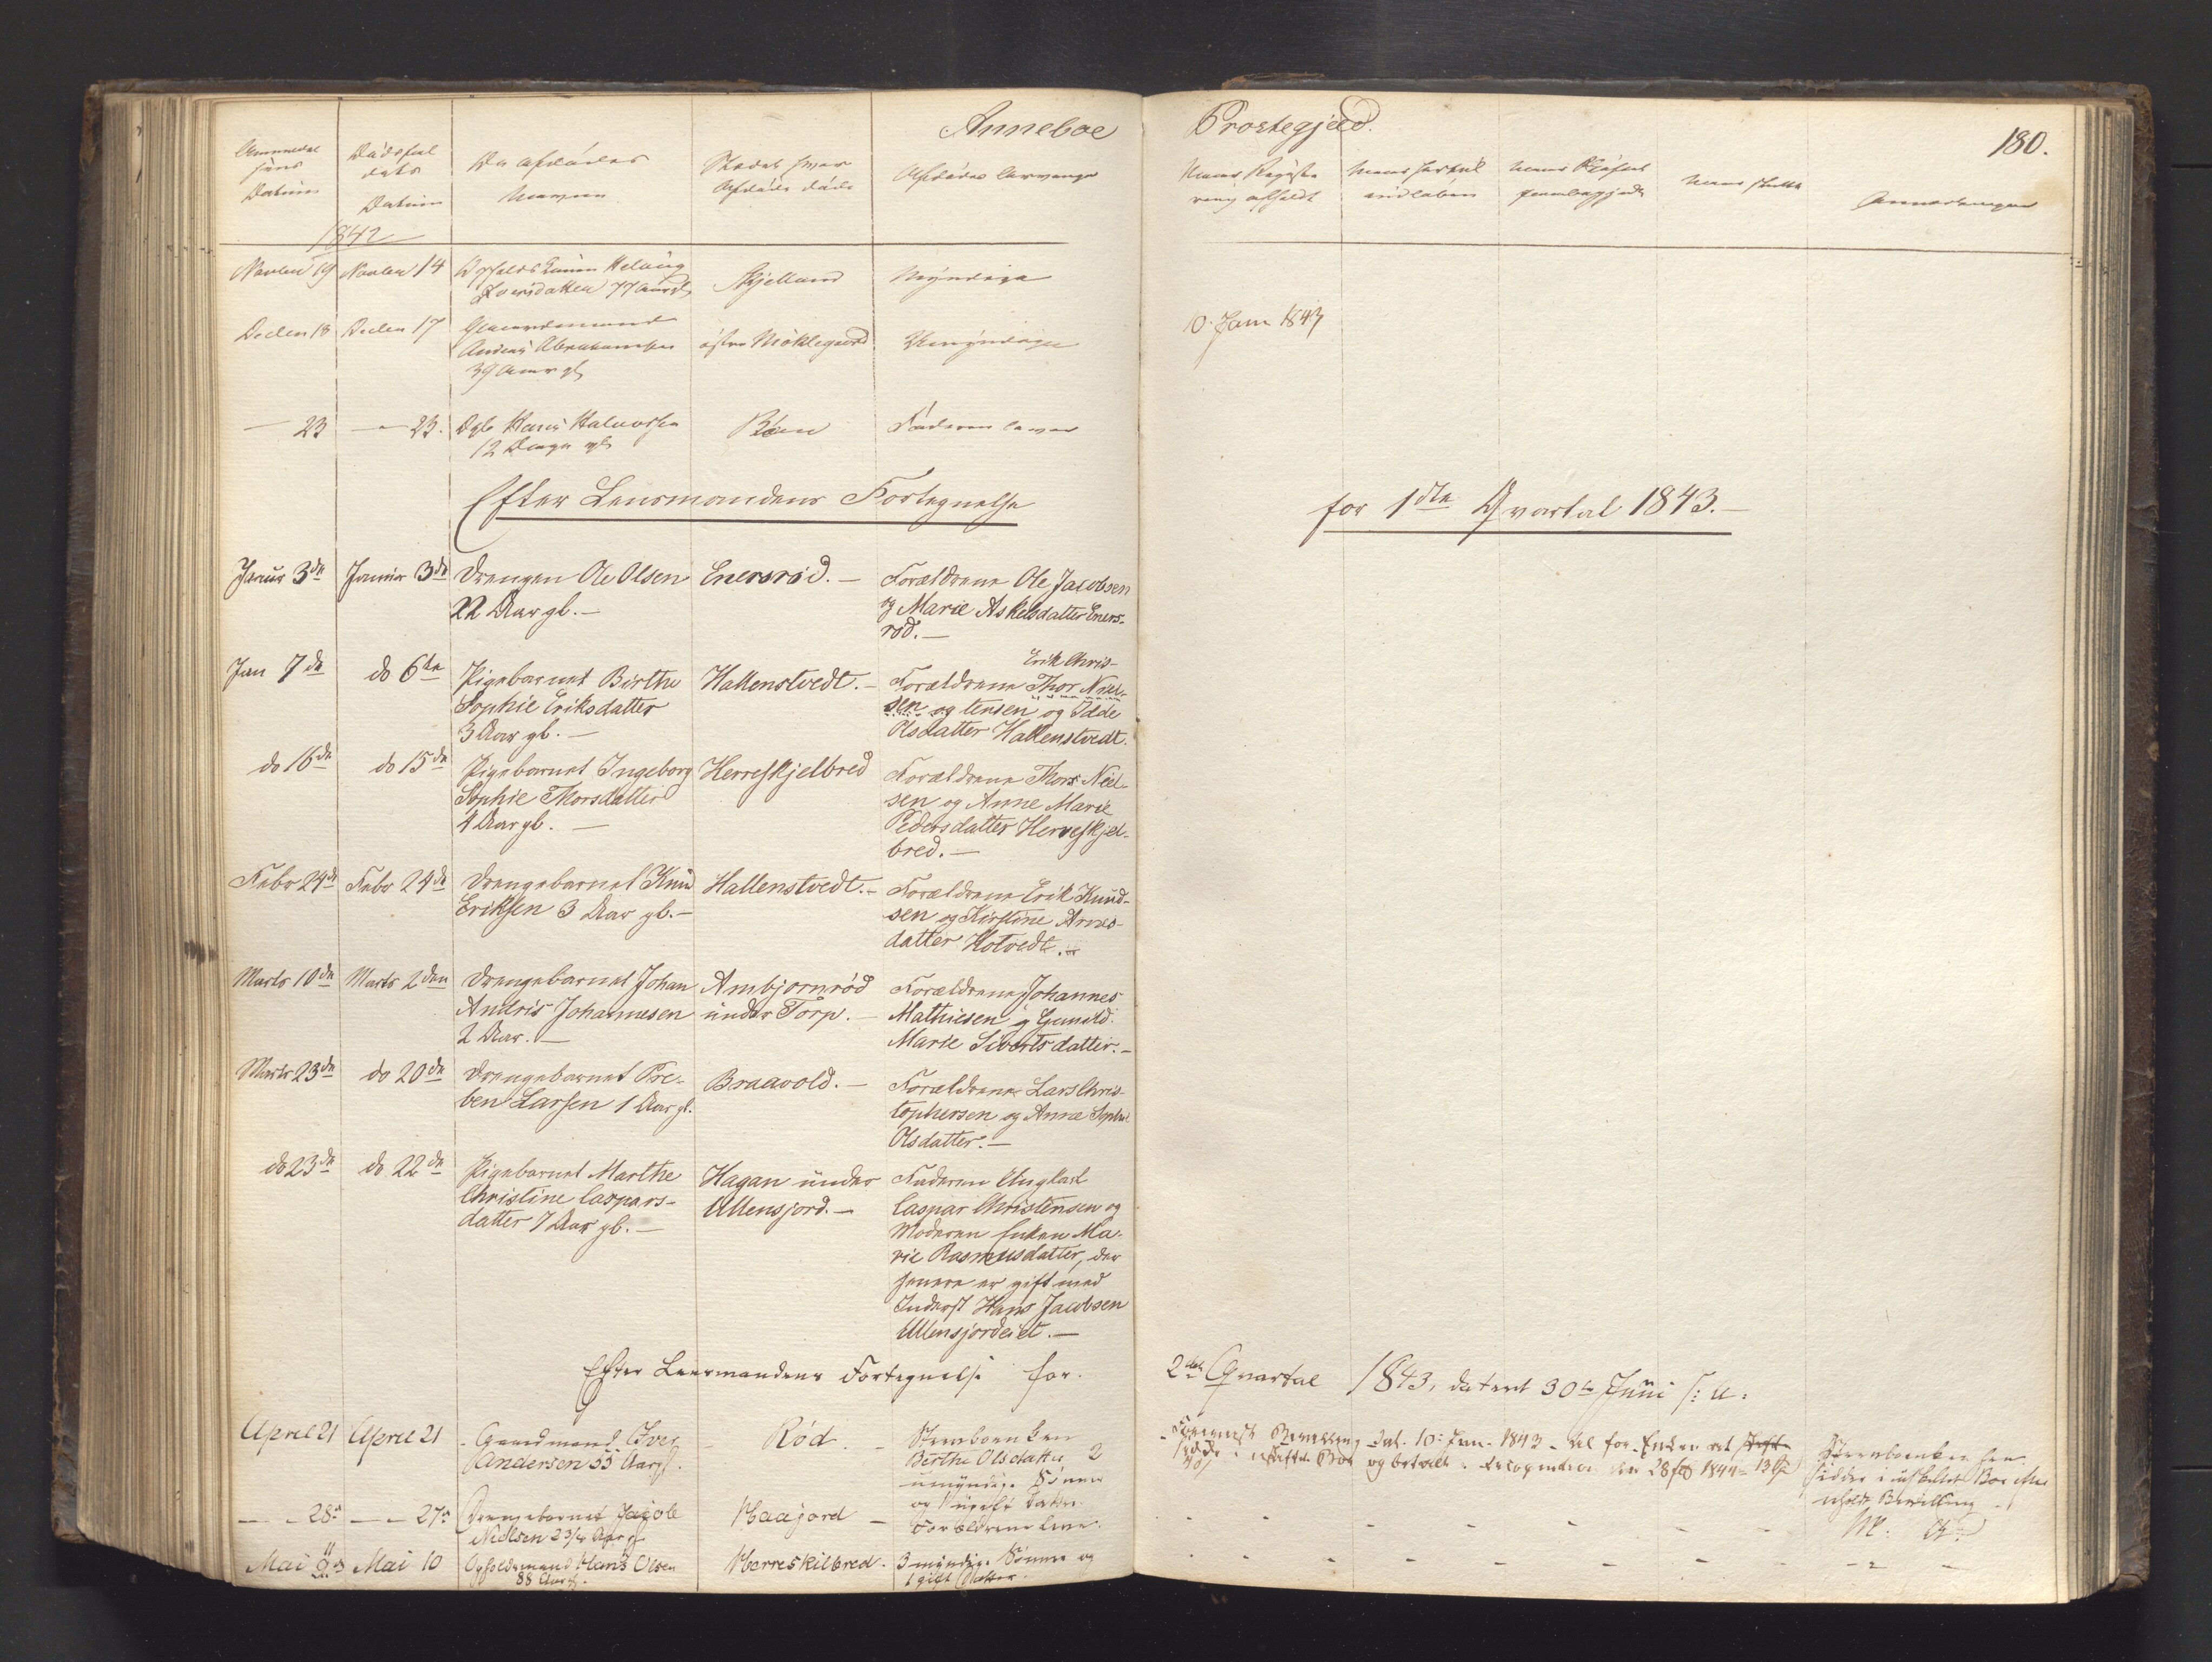 Anneboe
Prostegjeld.
180.
Anmeldel
sens
Datum
Dødsfal
dets
Datum
De afdødes
Navne
Stedet hvor
Afdøde døde
Afdødes Arvinger
Naar Registe
ring afholdt
Naar Skifte
Anmærkninger
1842
Novber 19 Novber 14
datter 77 Aar gl
Skjelland
Myndige
Decber 18 Decber 17 Gaardmand
Anders Abrahamsen
39 Aar gl
østre Møklegaard
Umyndige
10. Janr 1843
— 23 — 23. Dgb Hans Halvorsen
12 Dage gl
Bøen
Faderen lever
Efter Lensmandens Fortegnelse
for 1ste Qvartal 1843.—
Januar 3de Januar 3de Drengen Ole Olsen
22 Aar gl.—
Enersrød.—
Forældrene Ole Jacobsen
og Marie Askelsdatter Eners-
rød.—
Jan 7de do 6te Pigebarnet Birthe
Sophie Eriksdatter
3 Aar gl.—
Hallenstvedt.—
Erik Chris-
Forældrene Thor Niel-
sen og tensen og Idde
Olsdatter Hallenstvedt.
do 16de do 15de Pigebarnet Ingeborg
Sophie Thorsdatter
4 Aar gl.—
Herreskjelbred
Forældrene Thor Niel-
sen og Anne Marie
Pedersdatter Herreskjel-
bred.—
Febr 24de Febr 24de Drengebarnet Knud
Eriksen 3 Aar gl.—
Hallenstvedt.—
Forældrene Erik Knud-
sen og Kirstine Arnes-
datter Hotvedt.
Marts 10de Marts 2den Drengebarnet Johan
Andris Johannesen
2 Aar.—
Ambjørnrød
under Torp.—
Forældrene Johannes
Mathiesen og Gunild
Marie Sivertsdatter.—
Marts 23de do 20de Drengebarnet Pre-
ben Larsen 1 Aar gl.
Braavold.—
Forældrene Lars Chris-
tophersen og Anne Sophie
Olsdatter.—
do 23de do 22de Pigebarnet Marthe
Christine Caspars-
datter 7 Aar gl.—
Hagan under
Ullensjord.—
Faderen Ungkarl
Caspar Christensen og
Moderen Enken Ma-
rie Rasmusdatter, der
senere er gift med
Inderst Hans Jacobsen
Ullensjordeiet.—
Efter Lensmandens Fortegnelse for
2det Qvartal 1843, dateret 30te Juni s: A:
April 21 April 21 Gaardmand Iver
Andersen 55 Aar gl.
Rød.
Sterboenken
Berthe Olsdatter, 2
umyndige Sønner
og 1 ugift Datter
Bevilling dat. 10 Jun. 1843 til for Enken at
i uskiftet Boe og betalt den 28 1844
Sterboenken hen-
sidder i uskiftet Boe
erholdt Bevilling
— 28. — 27. Drengebarnet Jacob
Nielsen 2 3/4 Aar gl
Haajord
Forældrene leve.
Mai 11 Mai 10 Opholdsmand Hans Olsen
88 Aar gl.
Herreskilbred.
3 myndige Sønner og
1 gift Datter.